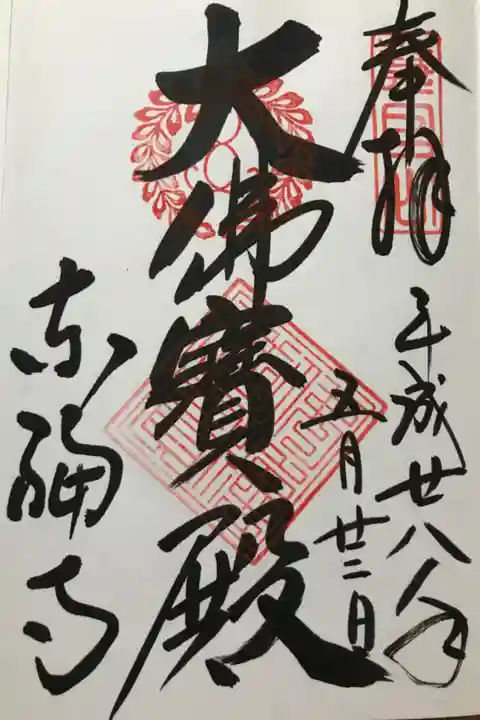 奉拝
平成廿八年
五月廿二日
大佛寳殿
东福寺